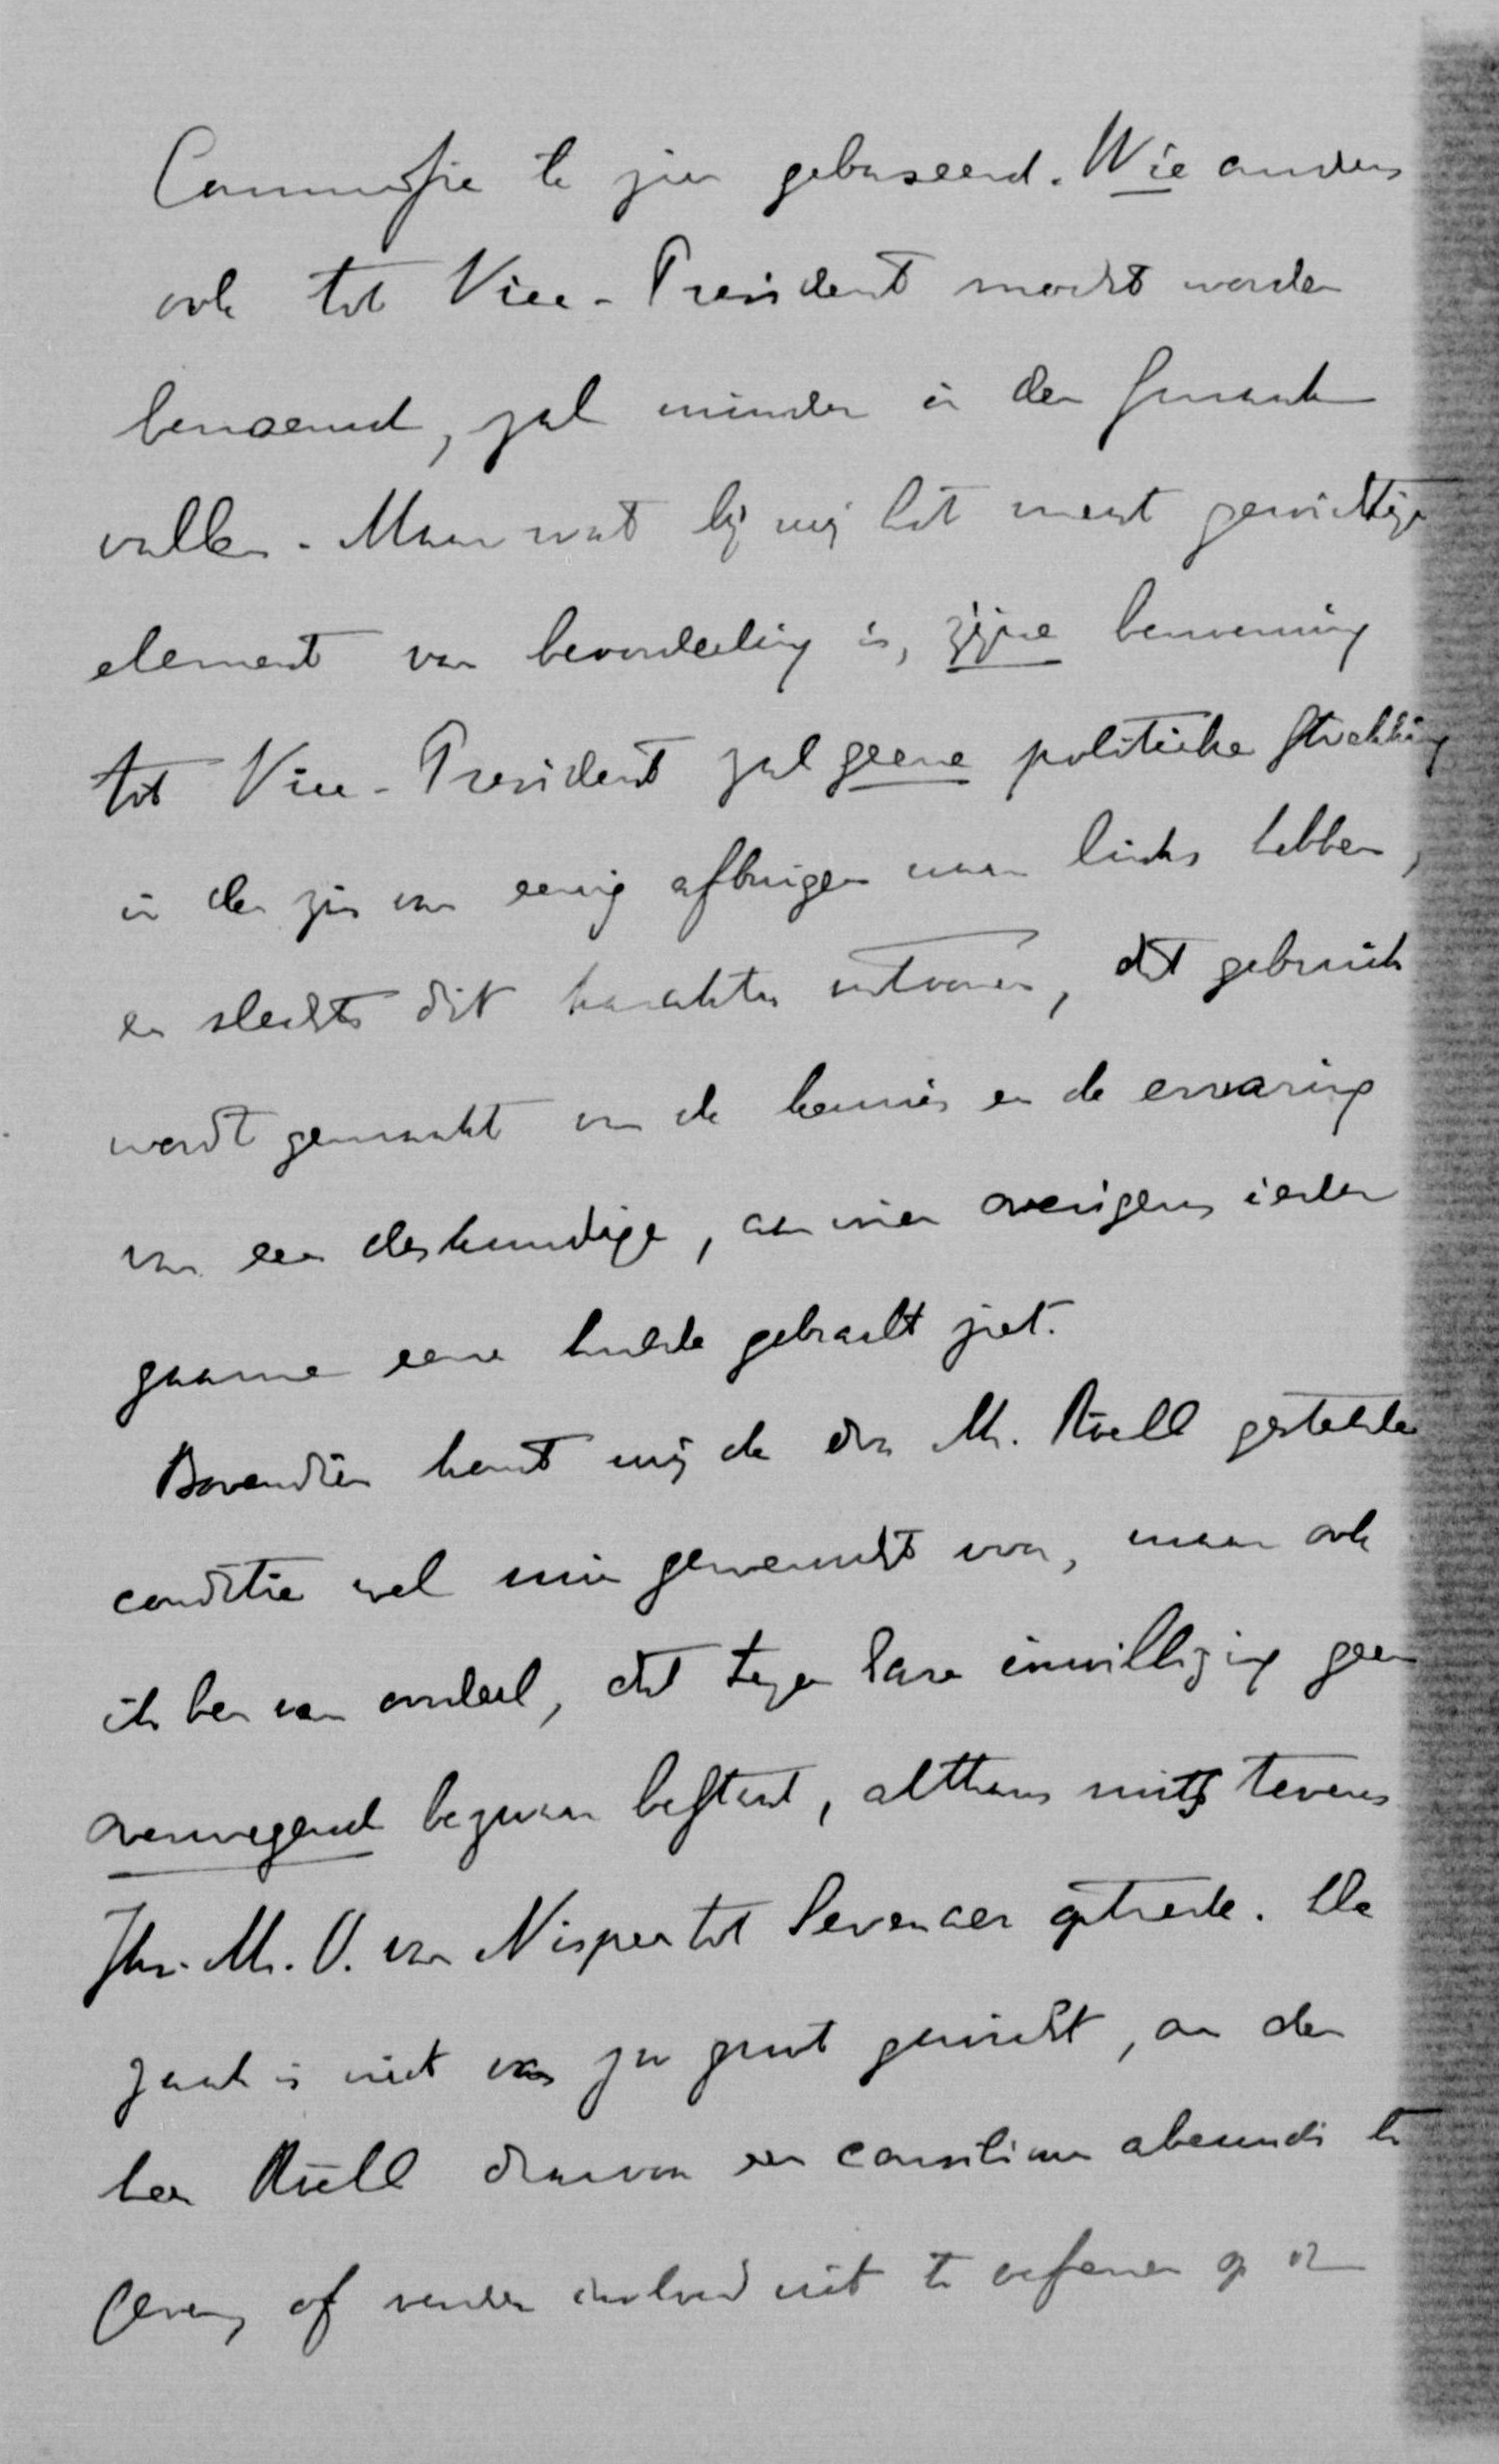 Commissie te zijn gebaseerd. Wie anders
ook tot Vice-President mocht worden
benoemd, zal minder in den smaak
vallen. Maar wat bij mij het meest gewichtige
element van beoordeeling is, zijne benoeming
tot Vice-President zal geene politieke strekking
in den zin van eenig afbuigen naar links hebben,
en slechts dit karakter vertoonen, dat gebruik
wordt gemaakt van de kennis en de ervaring
van een deskundige, aan wien overigens ieder
gaarne eene hulde gebracht ziet.
Bovendien komt mij de door Mr. Röell gestelde
conditie wel min gewenscht voor, maar ook
ik ben van oordeel, dat tegen hare inwilliging geen
overwegend bezwaar bestaat, althans mits tevens
Jhr. Mr. O. van Nispen tot Sevenaer optrede. De
zaak is niet van zoo groot gewicht, om den
heer Röell daarvoor een consilium abeundi te
geven, of verder invloed uit te oefenen op